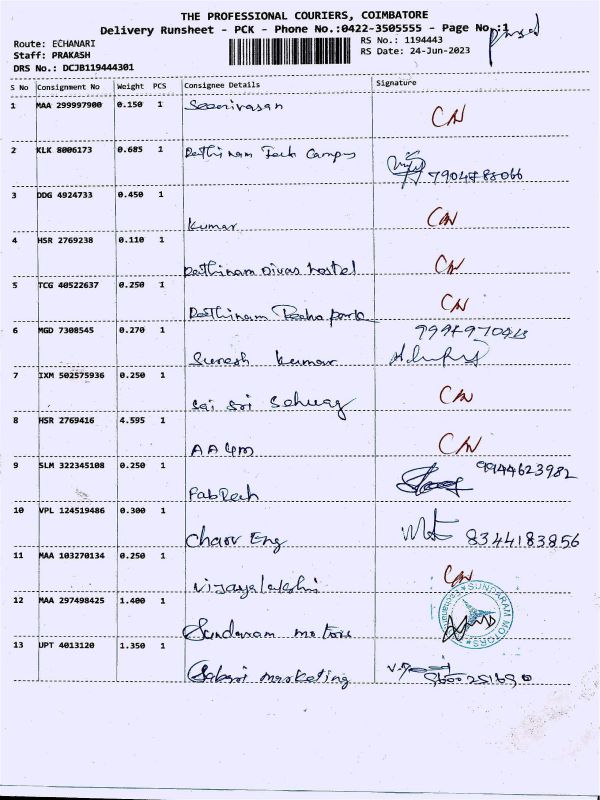 THE PROFESSIONAL COURIERS, COIMBATORE
Delivery Runsheet - PCK - Phone No.:0422-3505555 - Page No.:1
Route: ECHANARI
RS No.: 1194443
Staff: PRAKASH
RS Date: 24-Jun-2023
DRS No.: DCJB119444301
S No Consignment No Weight PCS Consignee Details Signature
1 MAA 299997900 0.150 1 CN
2 KLK 8006173 0.685 1 Rathinam Tech Campus 7904783066
3 DDG 4924733 0.450 1 Kumar CN
4 HSR 2769238 0.110 1 Rathinam Divas hostel CN
5 TCG 40522637 0.250 1 Rathinam Techo park CN
6 MGD 7308545 0.270 1 Suresh Kumar
7 IXM 502575936 0.250 1 Sai Sri CN
8 HSR 2769416 4.595 1 CN
9 SLM 322345108 0.250 1 FabTech 9944623982
10 VPL 124519486 0.300 1 Eng 8344183856
11 MAA 103270134 0.250 1 Vijayalakshmi CN
12 MAA 297498425 1.400 1 Sundaram motors SUNDARAM MOTORS
13 UPT 4013120 1.350 1 marketing